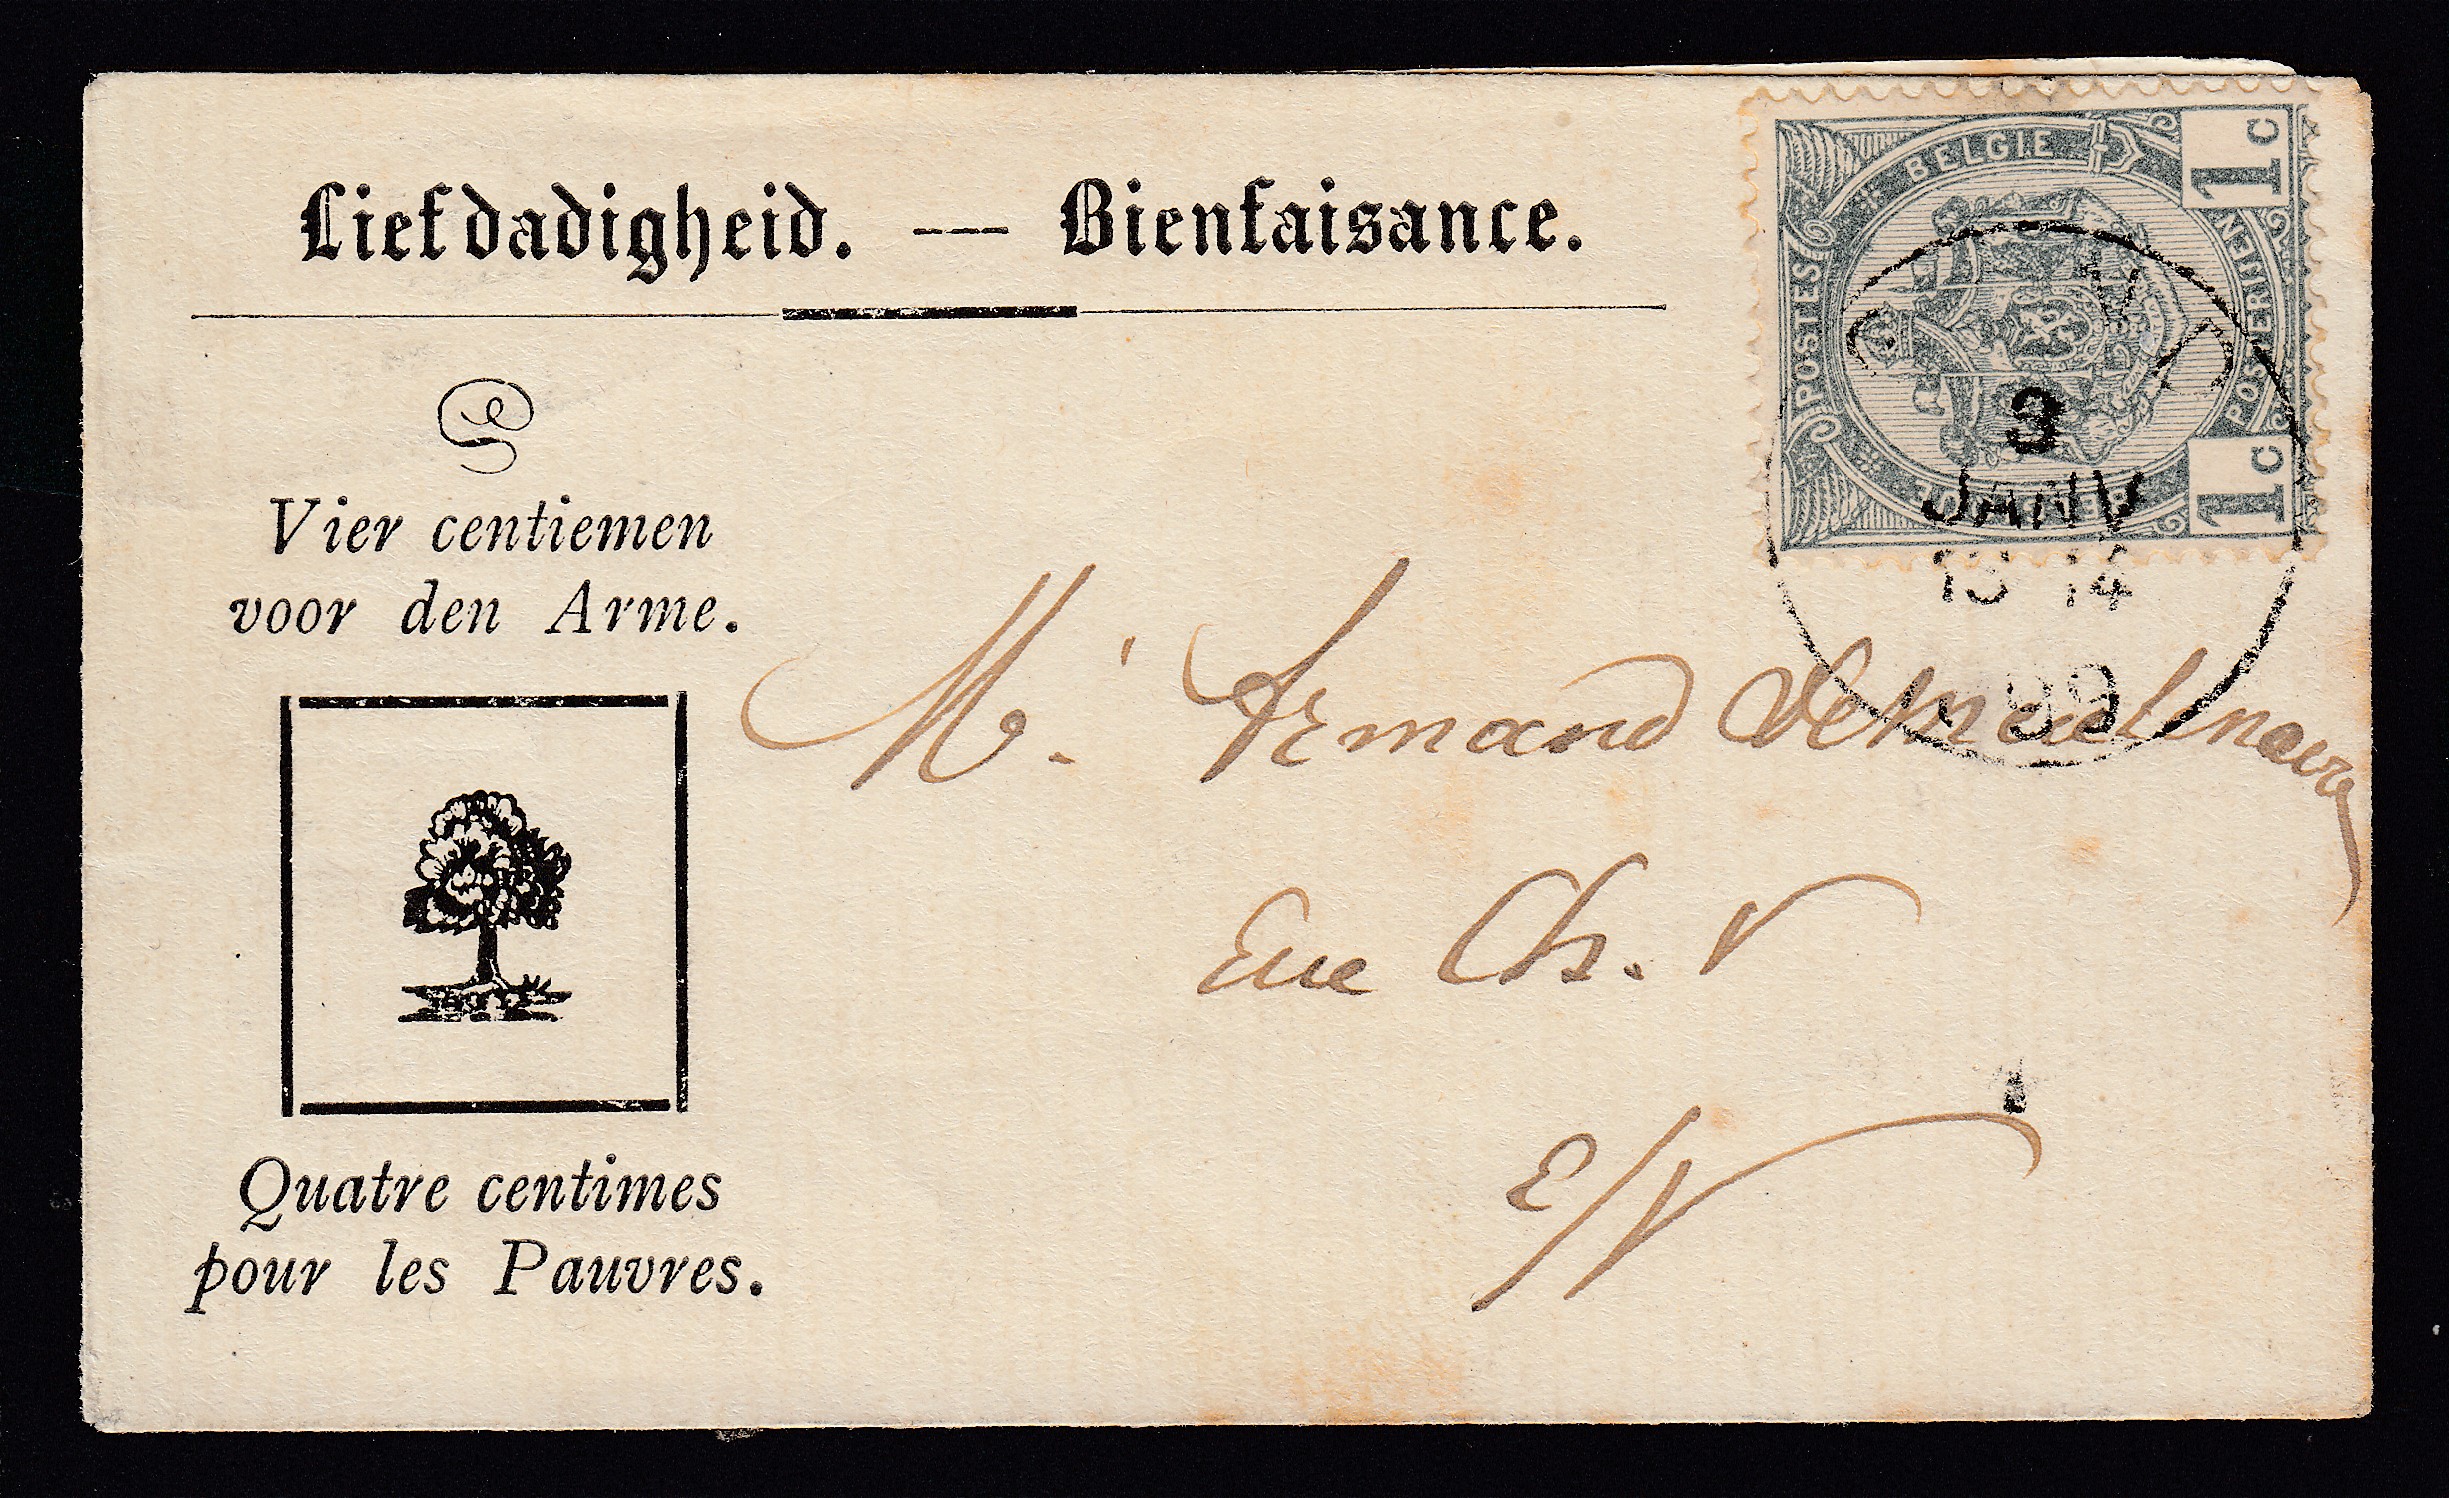 Liefdadigheid. — Bienfaisance.
Vier centiemen
voor den Arme.
Quatre centimes
pour les Pauvres.
BELGIE
POSTES
POSTERIJEN
1c
1c
3
JANV
13 14
99
Mr. Armand
Rue Ch. V
E/V
1